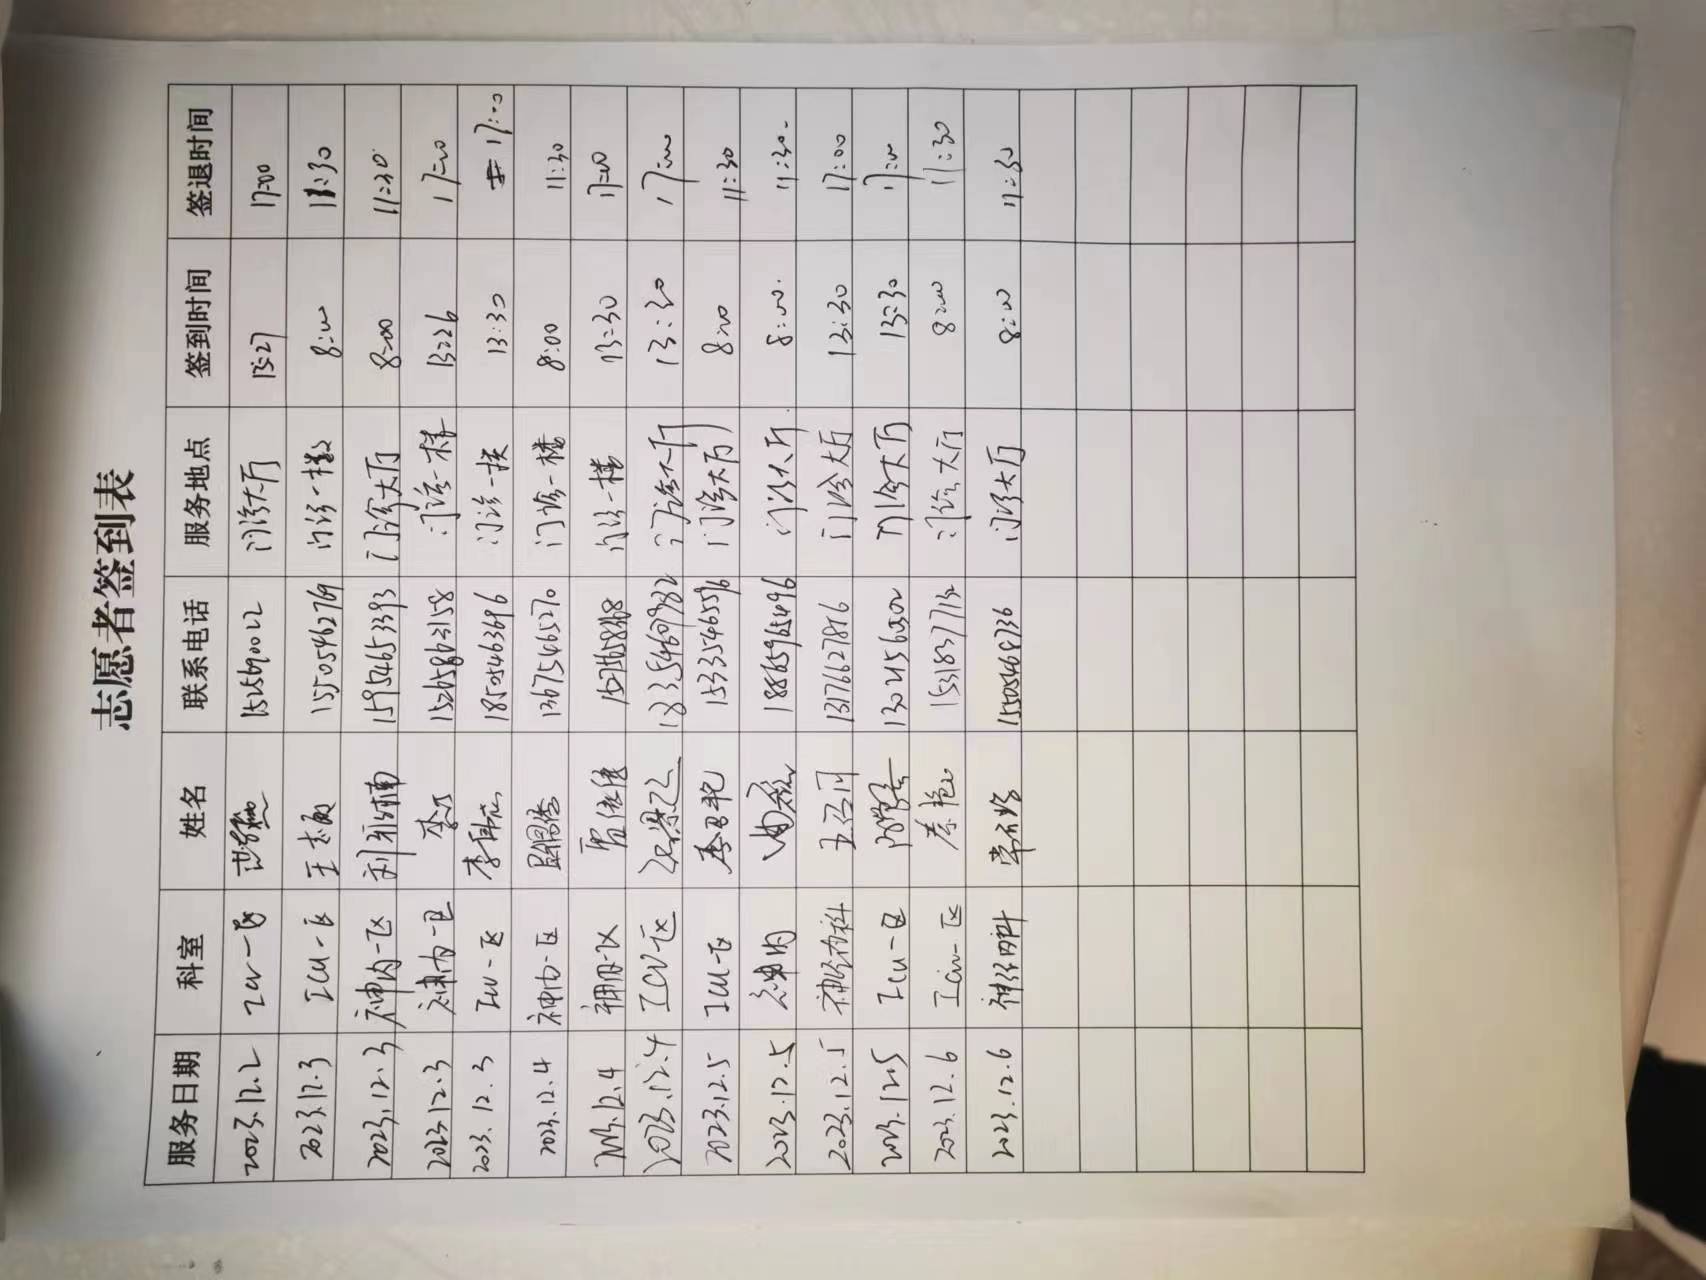 志愿者签到表
服务日期 科室 姓名 联系电话 服务地点 签到时间 签退时间
2023.12.2 ICU一区 门诊大厅 13:27 17:00
2023.12.3 ICU一区 15505462769 门诊一楼 8:00 11:30
2023.12.3 神内一区 刘祢楠 15954653393 门诊大厅 8:00 11:30
2023.12.3 神内一区 15265863158 门诊一楼 13:26 17:00
2023.12.3 ICU一区 18505463696 门诊一楼 13:30 17:00
2023.12.4 神内一区 13675465270 门诊一楼 8:00 11:30
2023.12.4 门诊一楼 13:30 17:00
2023.12.4 ICU一区 18354609782 门诊大厅 13:30 17:00
2023.12.5 ICU一区 15335465596 门诊大厅 8:00 11:30
2023.12.5 神内 18865965496 门诊大厅 8:00 11:30
2023.12.5 神经内科 13176627816 门诊大厅 13:30 17:00
2023.12.5 ICU一区 门诊大厅 13:30 17:00
2023.12.6 ICU一区 秦艳 15318377132 门诊大厅 8:00 11:30
2023.12.6 神经内科 15505468736 门诊大厅 8:00 11:30